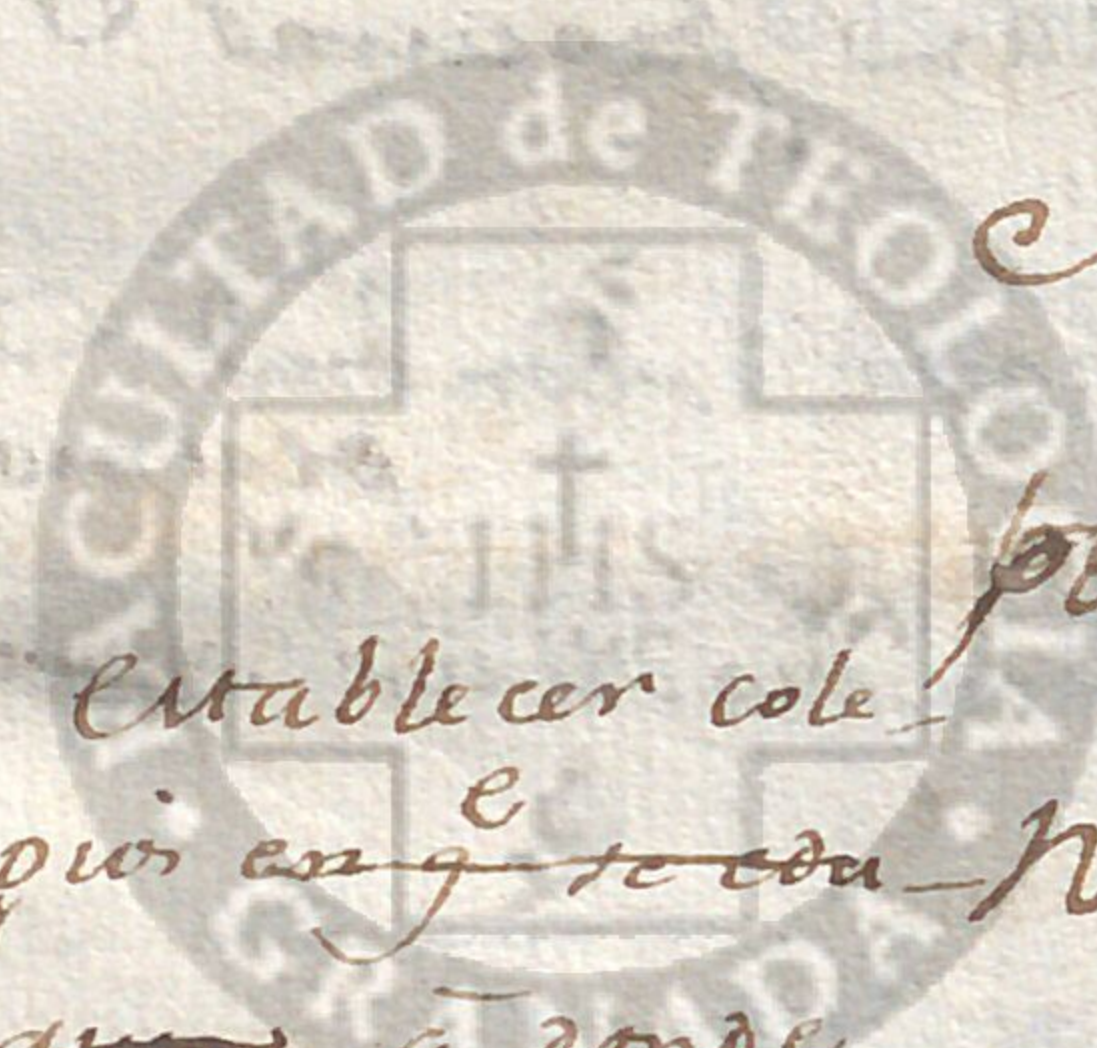 FACULTAD de TEOLOGIA · GRANADA ·
IHS
establecer cole-
gios en q^e se edu-
a donde